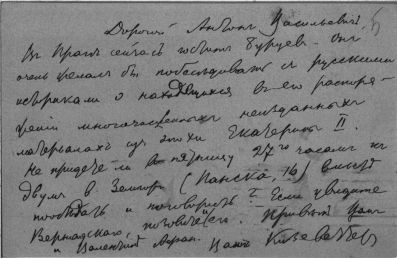 Дорогой Антон Васильевич
Въ Прагѣ сейчасъ гоститъ Бурцев. Онъ
очень желалъ бы побесѣдовать съ русскими
историками о находящихся въ его распоря-
женіи многочисленныхъ неизданныхъ
матерьялахъ изъ эпохи Екатерины II.
Не придете ли въ пятницу 27го часамъ къ
двумъ в Земгор (Панска, 16) вмѣстѣ
пообѣдать и поговорить? Если увидите
Вернадскаго, позовите и его. Привѣтъ Вамъ
и
Вашъ Кизеветтеръ